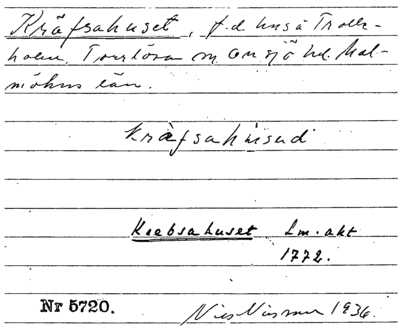 Kräfsahuset, f.d. hus å Trolle-
holm. Torrlösa sn, Onsjö hd. Mal-
möhus län.
kräfsahúsud
Krebsahuset Lm. akt
1772.
Nr 5720. 1936.